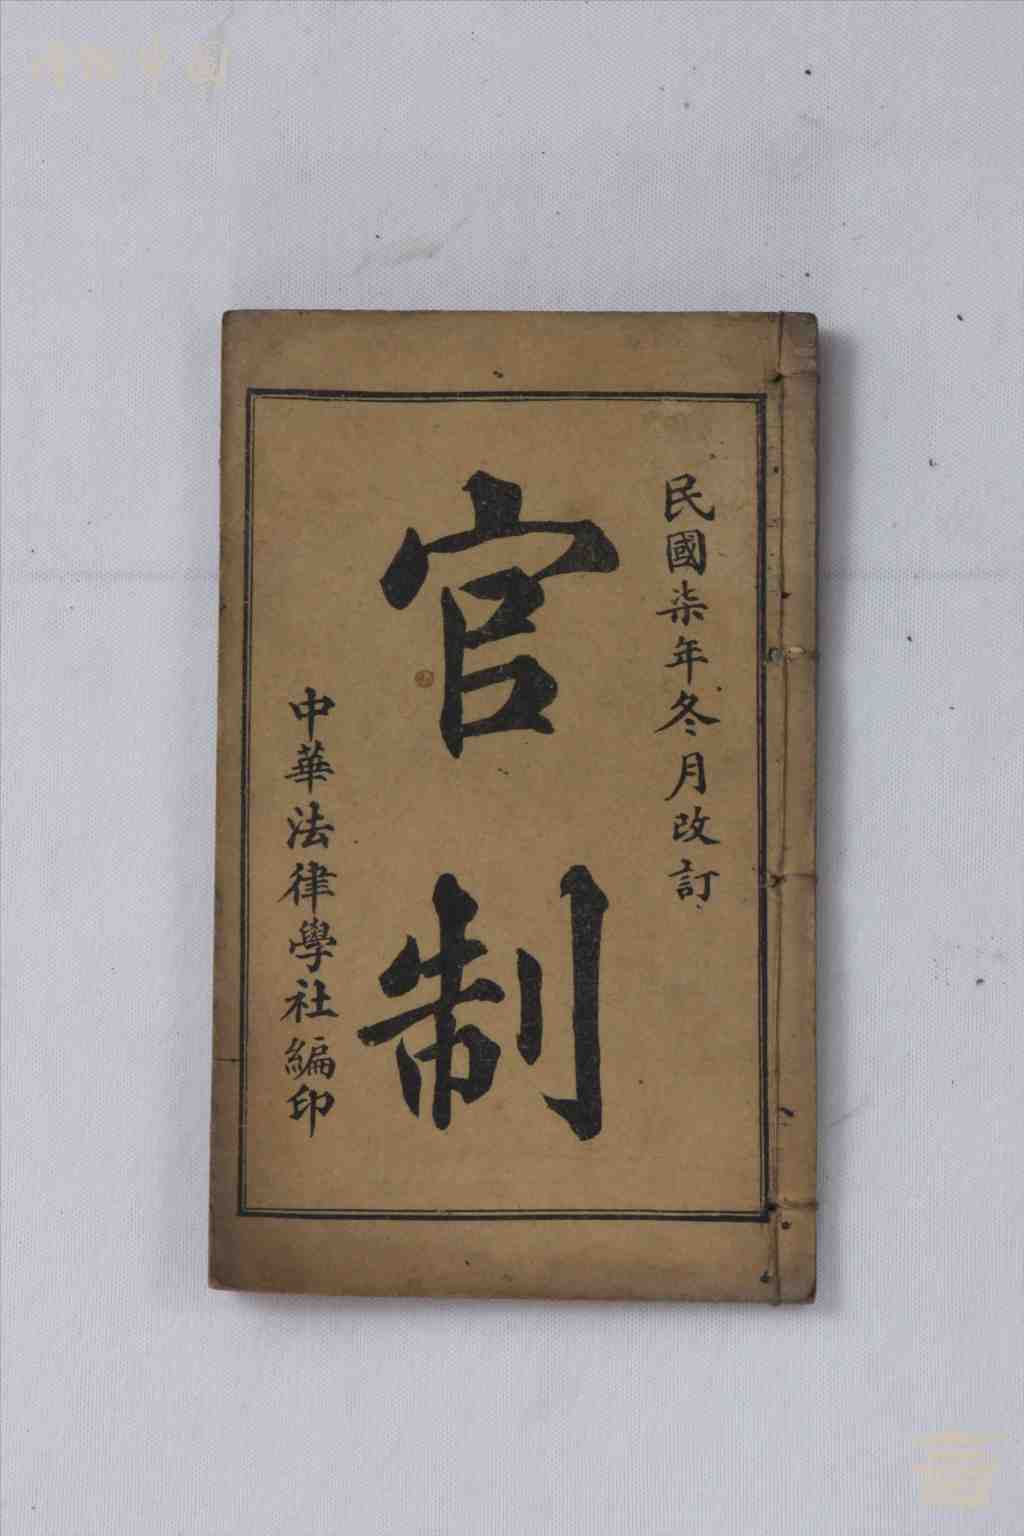 民國柒年冬月改訂
官制
中華法律學社編印